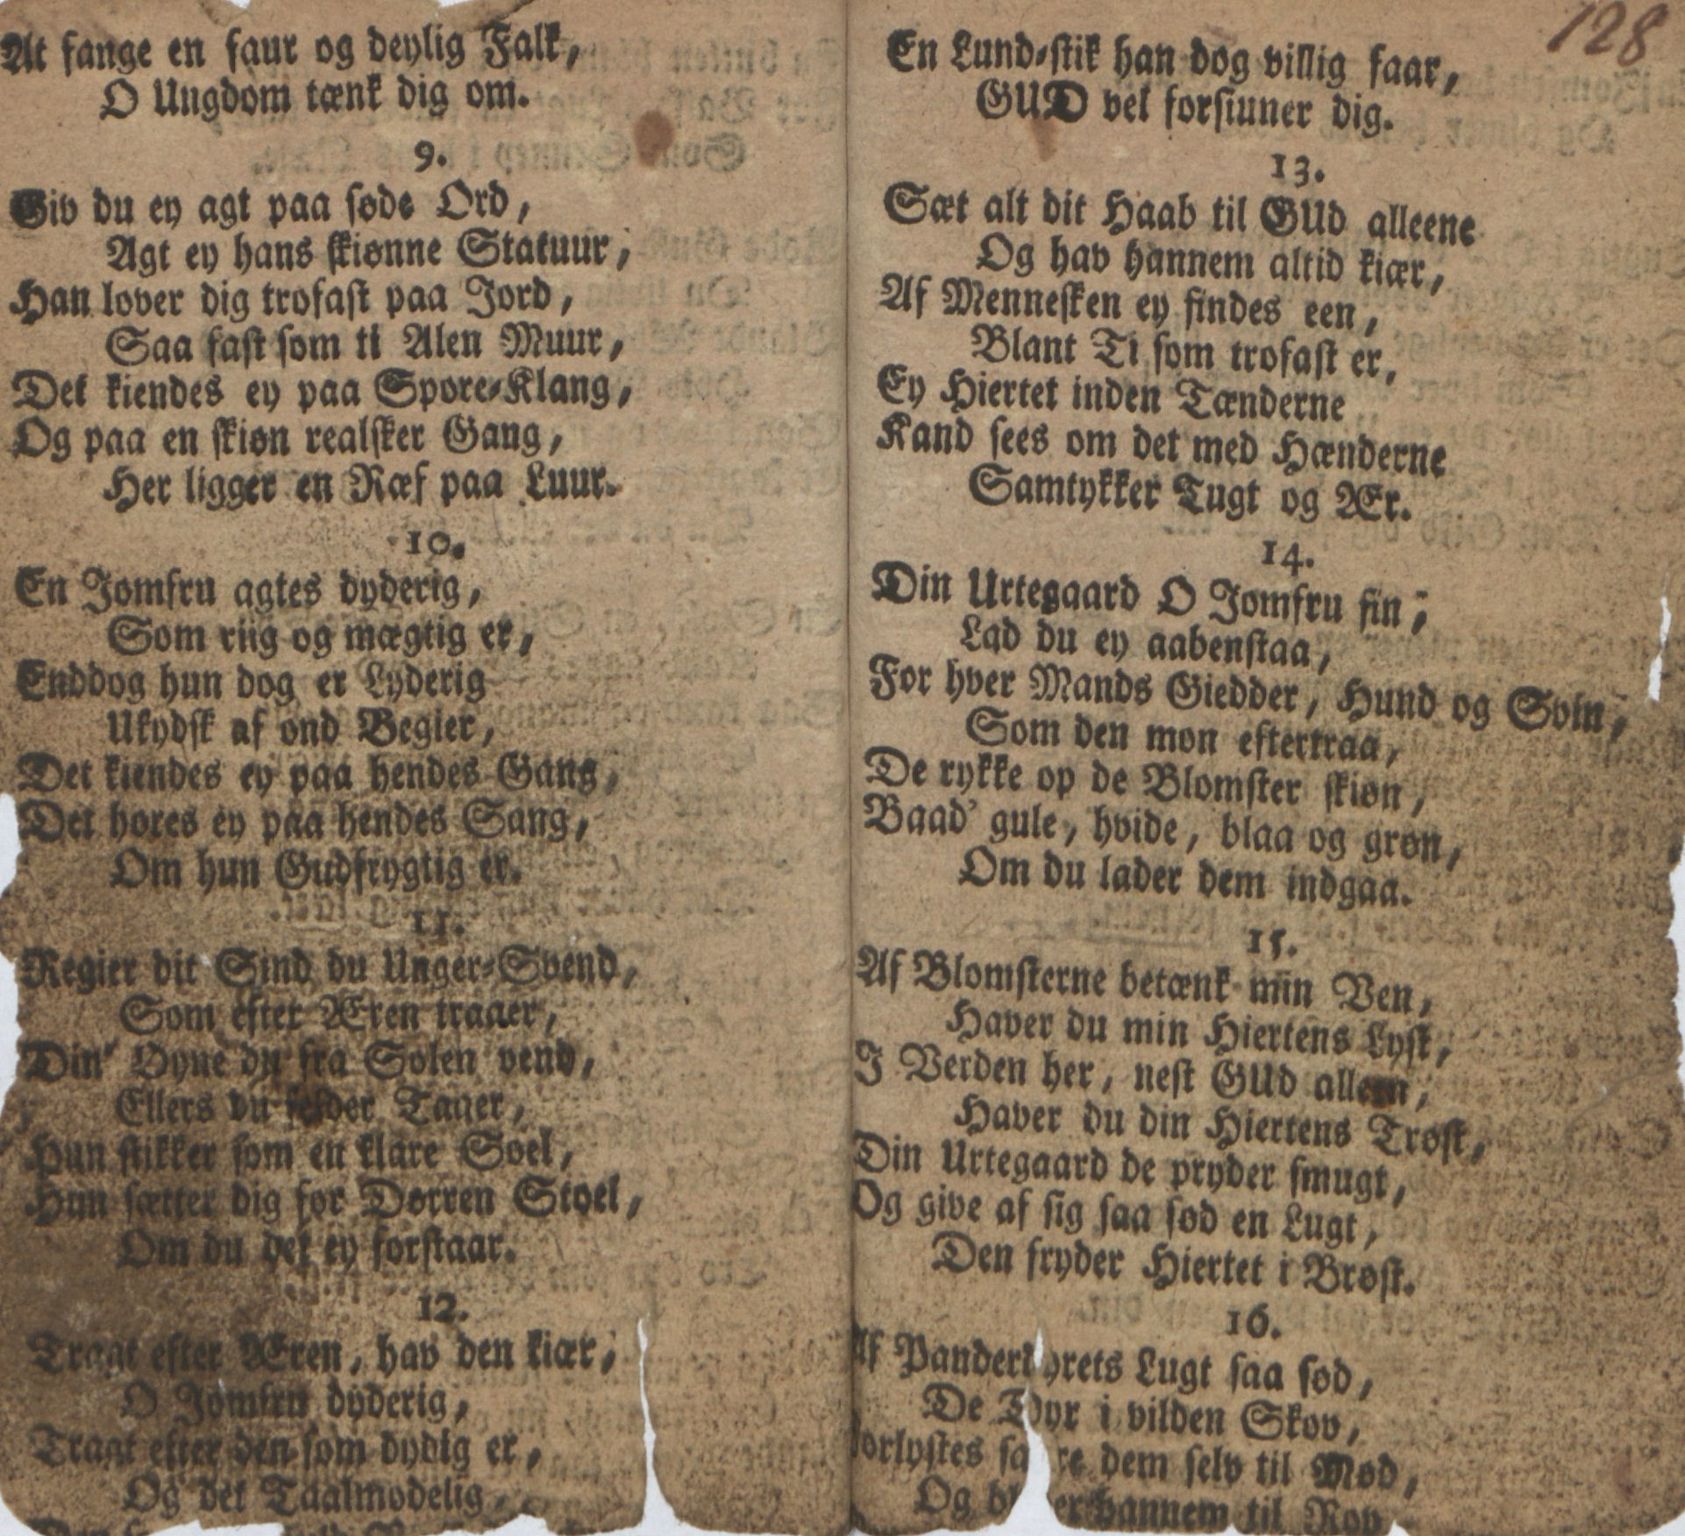 At fange en faur og deylig Falk,
O Ungdom tænk dig om.
9.
Giv du ey agt paa søde Ord,
Agt ey hans skiønne Statuur,
Han lover dig trofast paa Jord,
Saa fast som ti Alen Muur,
Det kiendes ey paa Spore-Klang,
Og paa en skiøn realsker Gang,
Her ligger en Ræf paa Luur.
10.
En Jomfru agtes dyderig,
Som riig og mægtig er,
Enddog hun dog er Lyderig
Ukydsk af ond Begier,
Det kiendes ey paa hendes Gang,
Det hores ey paa hendes Sang,
Om hun Gudfrygtig er.
11.
Regier dit Sind du Unger-Svend,
Som efter Æren traaer,
Din' Øyne du fra Solen vend,
Ellers du felder Taaer,
Hun stikker som en klare Soel,
Hun sætter dig for Dørren Stoel,
Om du det ey forstaar.
12.
Tragt efter Æren, hav den kiær,
O Jomfru dyderig,
Tragt efter den som dydig er,
Og det Taalmodelig,
128
En Lund-stik han dog villig faar,
GUD vel forsiuner dig.
13.
Sæt alt dit Haab til GUd alleene
Og hav hannem altid kiær,
Af Mennesken ey findes een,
Blant Ti som trofast er,
Ey Hiertet inden Tænderne
Kand sees om det med Hænderne
Samtykker Tugt og Ær.
14.
Din Urtegaard O Jomfru fin,
Lad du ey aabenstaa,
For hver Mands Giedder, Hund og Svin,
Som den mon eftertraa,
De rykke op de Blomster skiøn,
Baad' gule, hvide, blaa og grøn,
Om du lader dem indgaa.
15.
Af Blomsterne betænk min Ven,
Haver du min Hiertens Lyst,
I Verden her, nest GUd alleen,
Haver du din Hiertens Trøst,
Din Urtegaard de pryder smugt,
Og give af sig saa sød en Lugt,
Den fryder Hiertet i Brøst.
16.
Af Lugt saa sød,
De Dyr i vilden Skov,
dem selv til Mød,
Og hannem til Rov